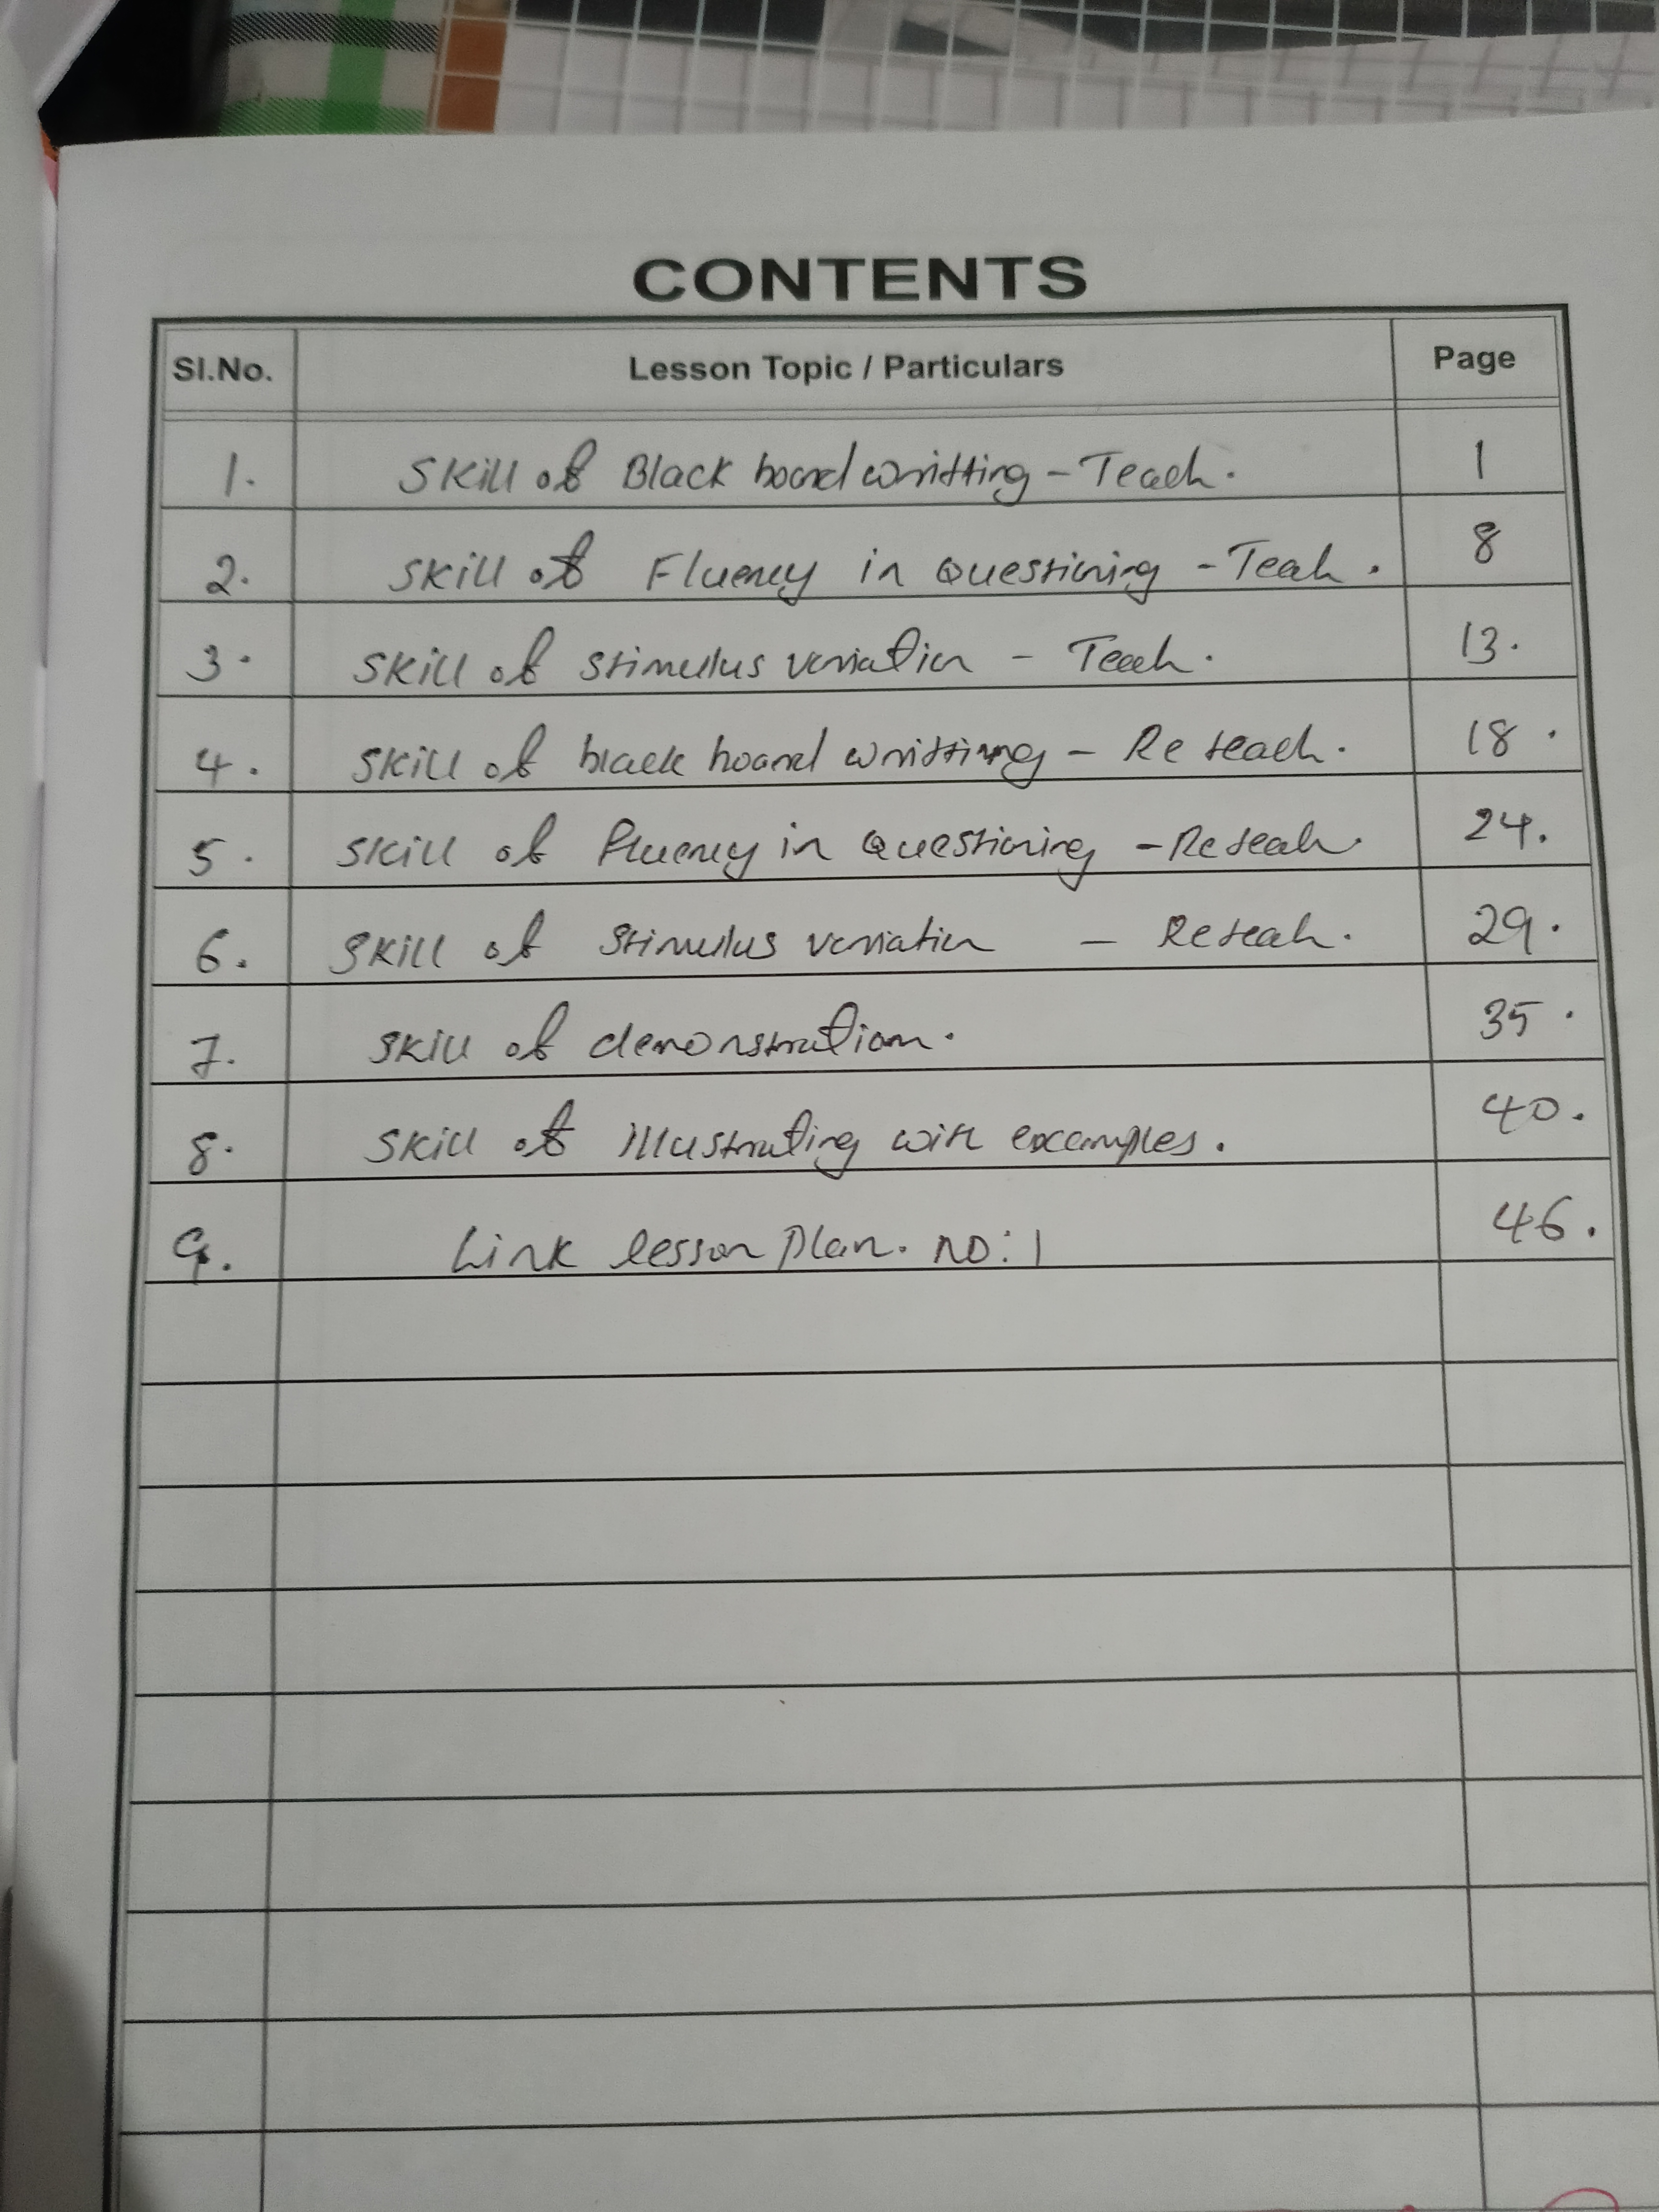 CONTENTS
Sl.No. Lesson Topic / Particulars Page
1. Skill of Black board writting - Teach. 1
2. Skill of Fluency in Questioning - Teach. 8
3. Skill of stimulus variation - Teach. 13.
4. Skill of black board writting - Re teach. 18.
5. Skill of fluency in Questioning - Reteach. 24.
6. Skill of Stimulus variation - Reteach. 29.
7. Skill of demonstration. 35.
8. Skill of illustrating with examples. 40.
9. Link lesson plan. no: 1 46.